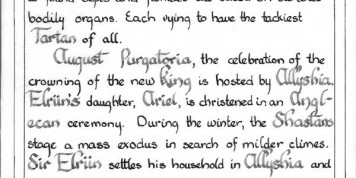 bodily organs. Each vying to have the tackiest
Tartan of all.
August Purgatoria, the celebration of the
crowning of the new King is hosted by Allyshia.
Elriin's daughter, Ariel, is christened in an Angl-
ecan ceremony. During the winter, the Shastans
stage a mass exodus in search of milder climes.
Sir Elriin settles his household in Allyshia and